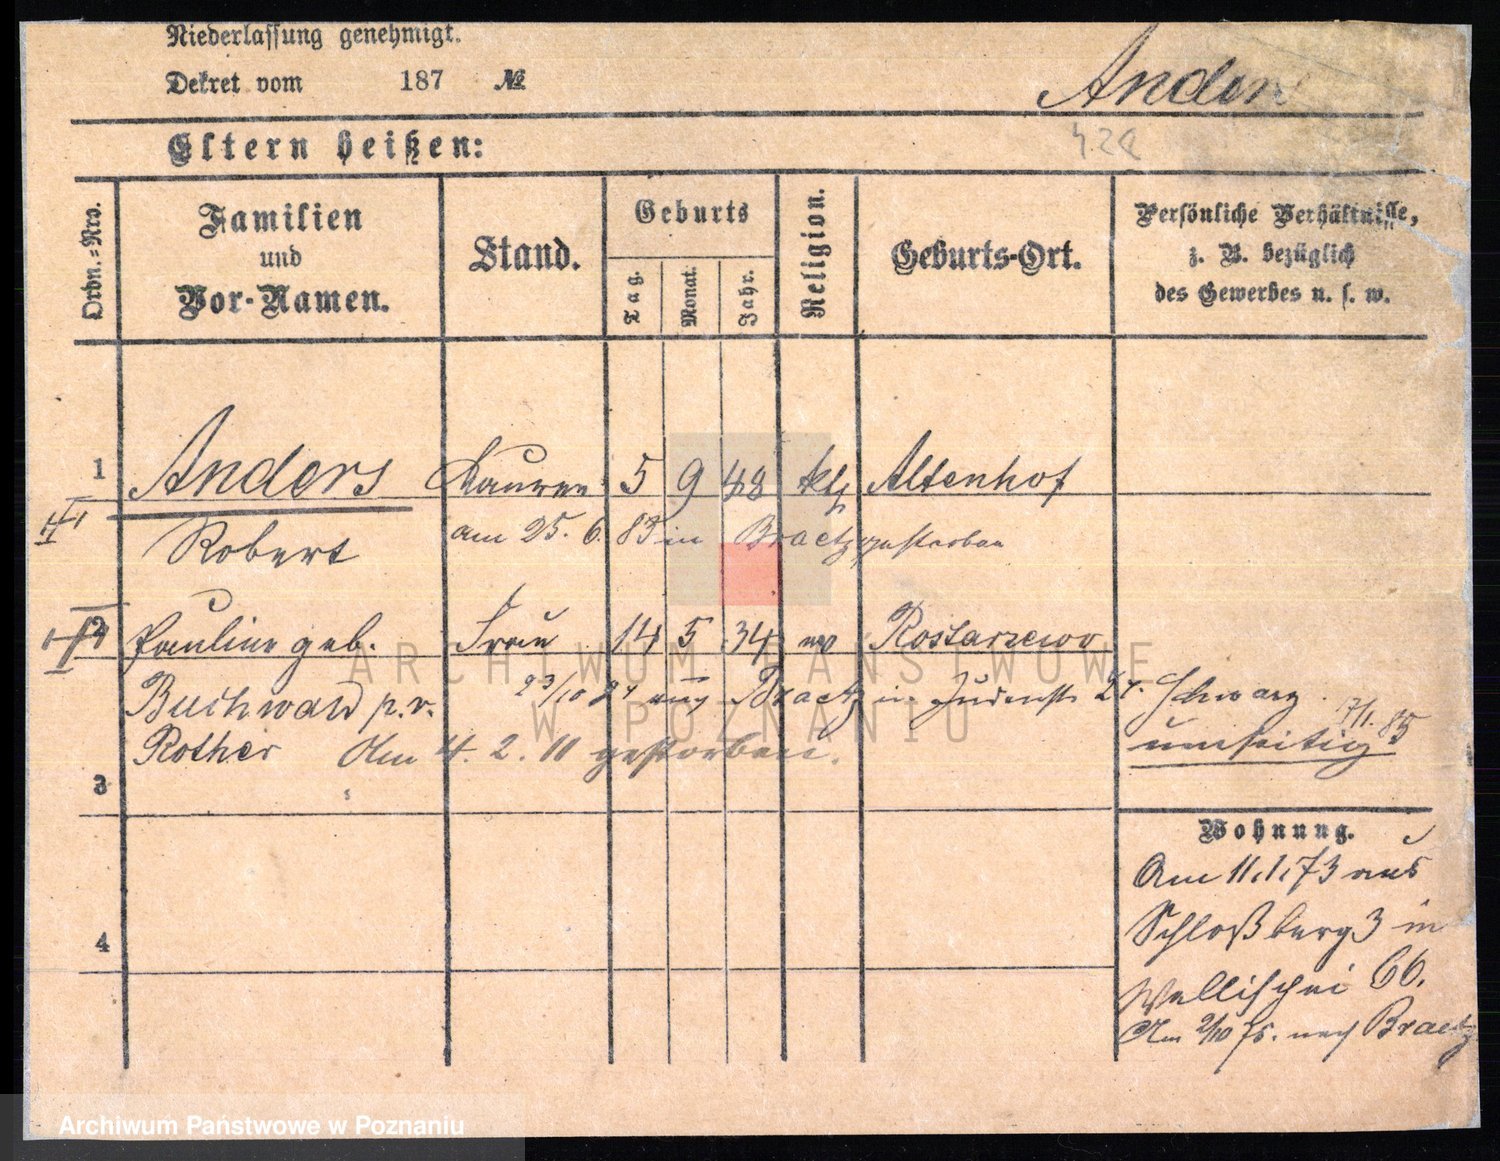 Niederlassung genehmigt.
Dekret vom 187 №
Anders
Eltern heißen:
Ordn.=Nro.
Familien
und
Vor-Namen.
Stand.
Geburts
Tag.
Monat.
Jahr.
Religion.
Geburts-Ort.
Persönliche Verhältnisse,
z. B. bezüglich
des Gewerbes u. s. w.
1 Anders 5 9 48 ktl Altenhof
Robert am 25. 6. 83 in Braetz gestorben
2 Pauline geb. Frau 14 5 34 Rostarzewo
Buchwald p. v. 23/10 aus Braetz in Judenstr 27. Schwarz 17/1. 85
Rother Am 4. 2. 11 gestorben.
umseitig
3
4
Wohnung.
Am 11.1.73 aus
Schloßberg 3 in
Wallischei 66.
Am 2/10 75. nach Braetz
ARCHIWUM PAŃSTWOWE
W POZNANIU
Archiwum Państwowe w Poznaniu